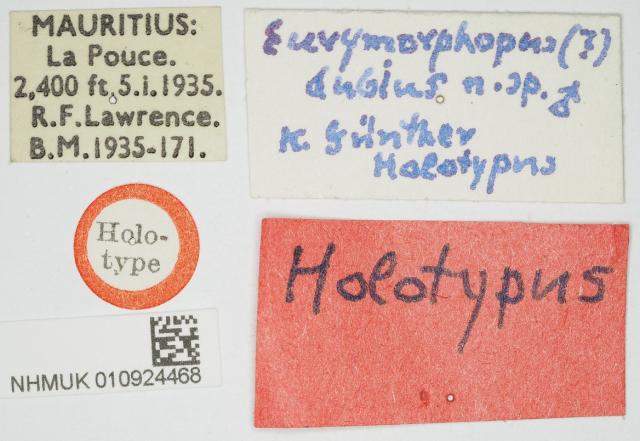 MAURITIUS:
La Pouce.
2,400 ft. 5.i.1935.
R.F.Lawrence.
B.M.1935-171.
Eurymorphopus (?)
dubius n. sp. ♂
K. Günther
Holotypus
Holo-
type
NHMUK 010924468
Holotypus